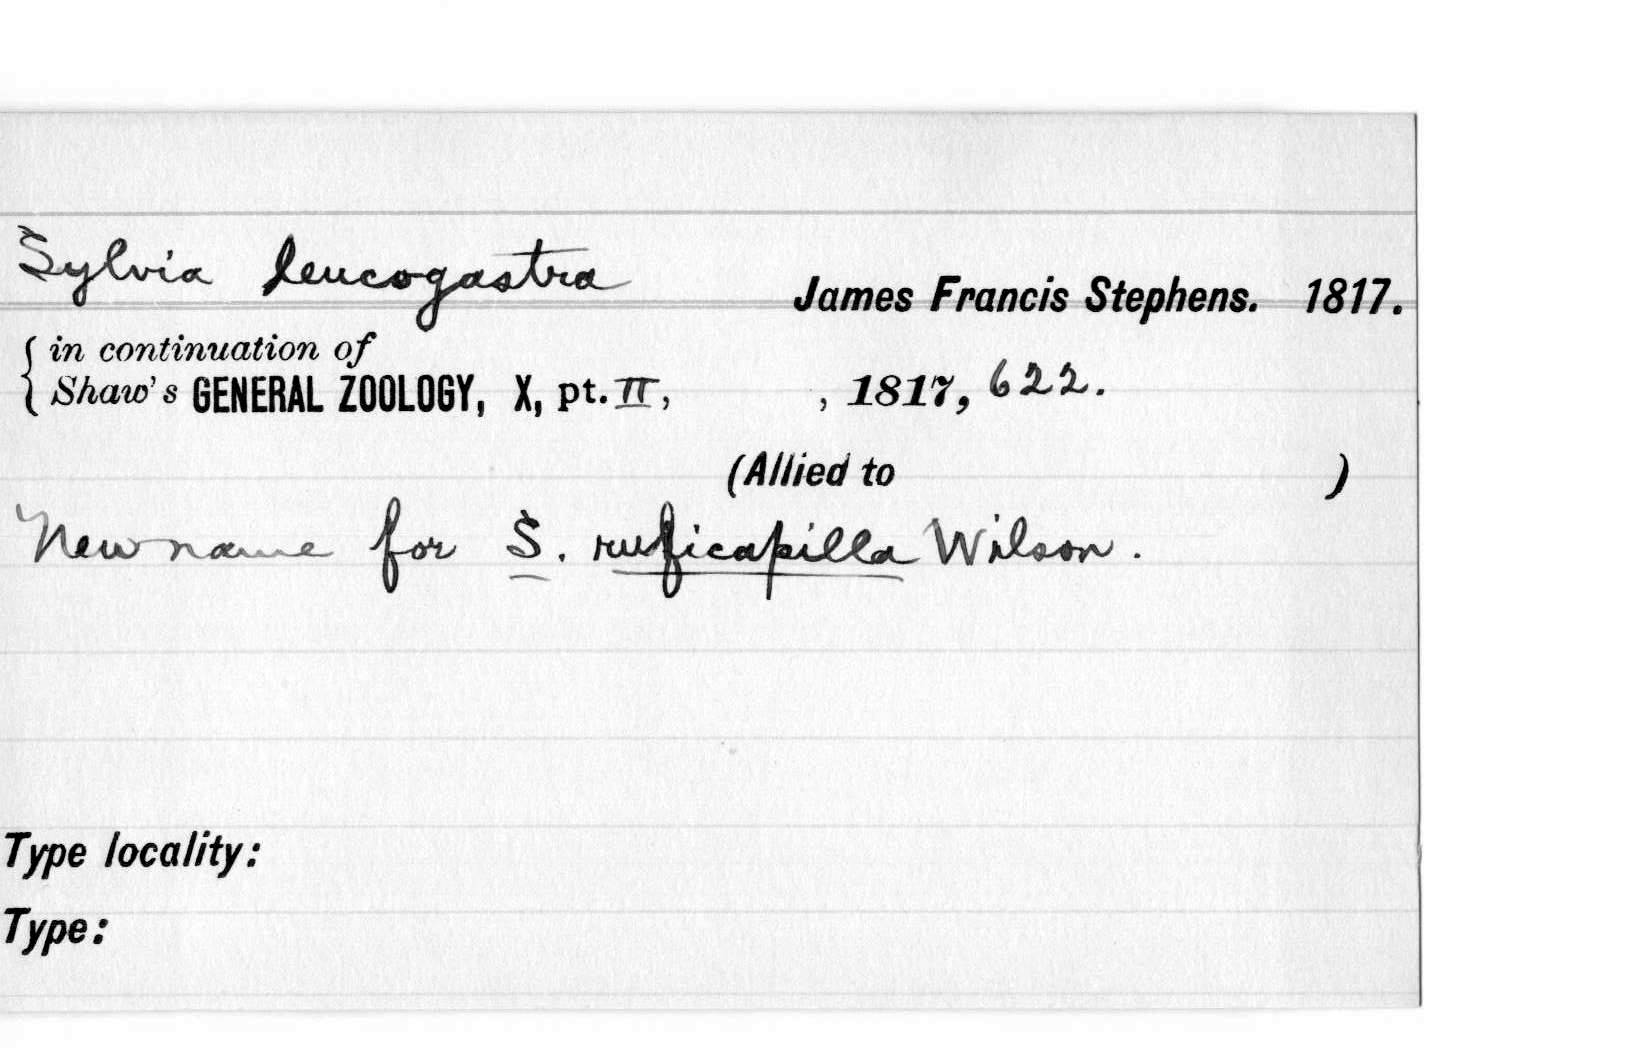 Sylvia leucogastra James Francis Stephens. 1817.
in continuation of
Shaw's GENERAL ZOOLOGY, X, pt. II, , 1817, 622.
(Allied to )
New name for S. ruficapilla Wilson.
Type locality:
Type: